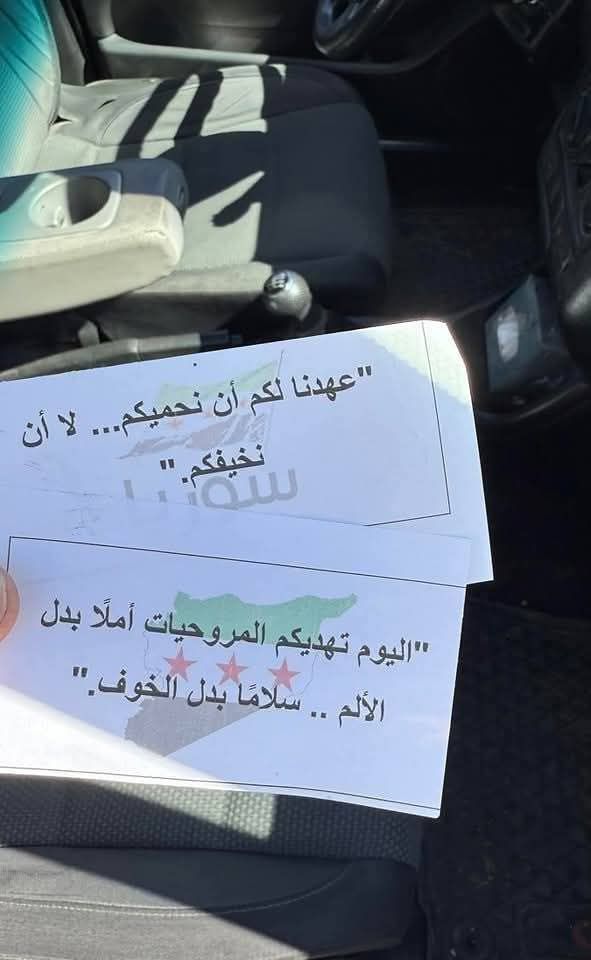 "عهدنا لكم أن نحميكم... لا أن
نخيفكم."
سوريا
"اليوم تهديكم المروحيات أملًا بدل
الألم .. سلامًا بدل الخوف."